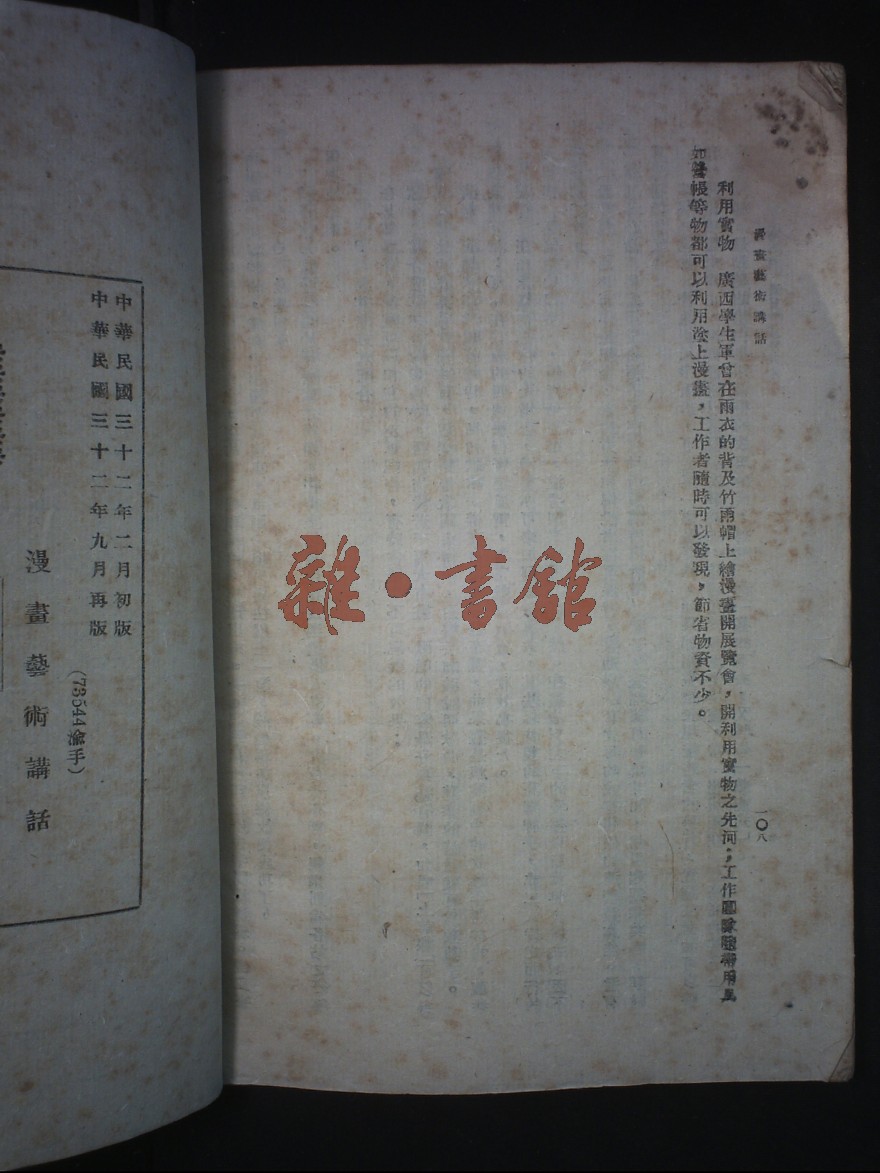 漫畫藝術講話
一〇八
利用實物　廣西學生軍曾在雨衣的背及竹雨帽上繪漫畫開展覽會，開利用實物之先河；工作團隊隨帶用具
如營帳等物都可以利用塗上漫畫，工作者隨時可以發現，節省物資不少。
雜·書館
中華民國三十二年二月初版
中華民國三十二年九月再版
（73544渝手）
漫畫藝術講話